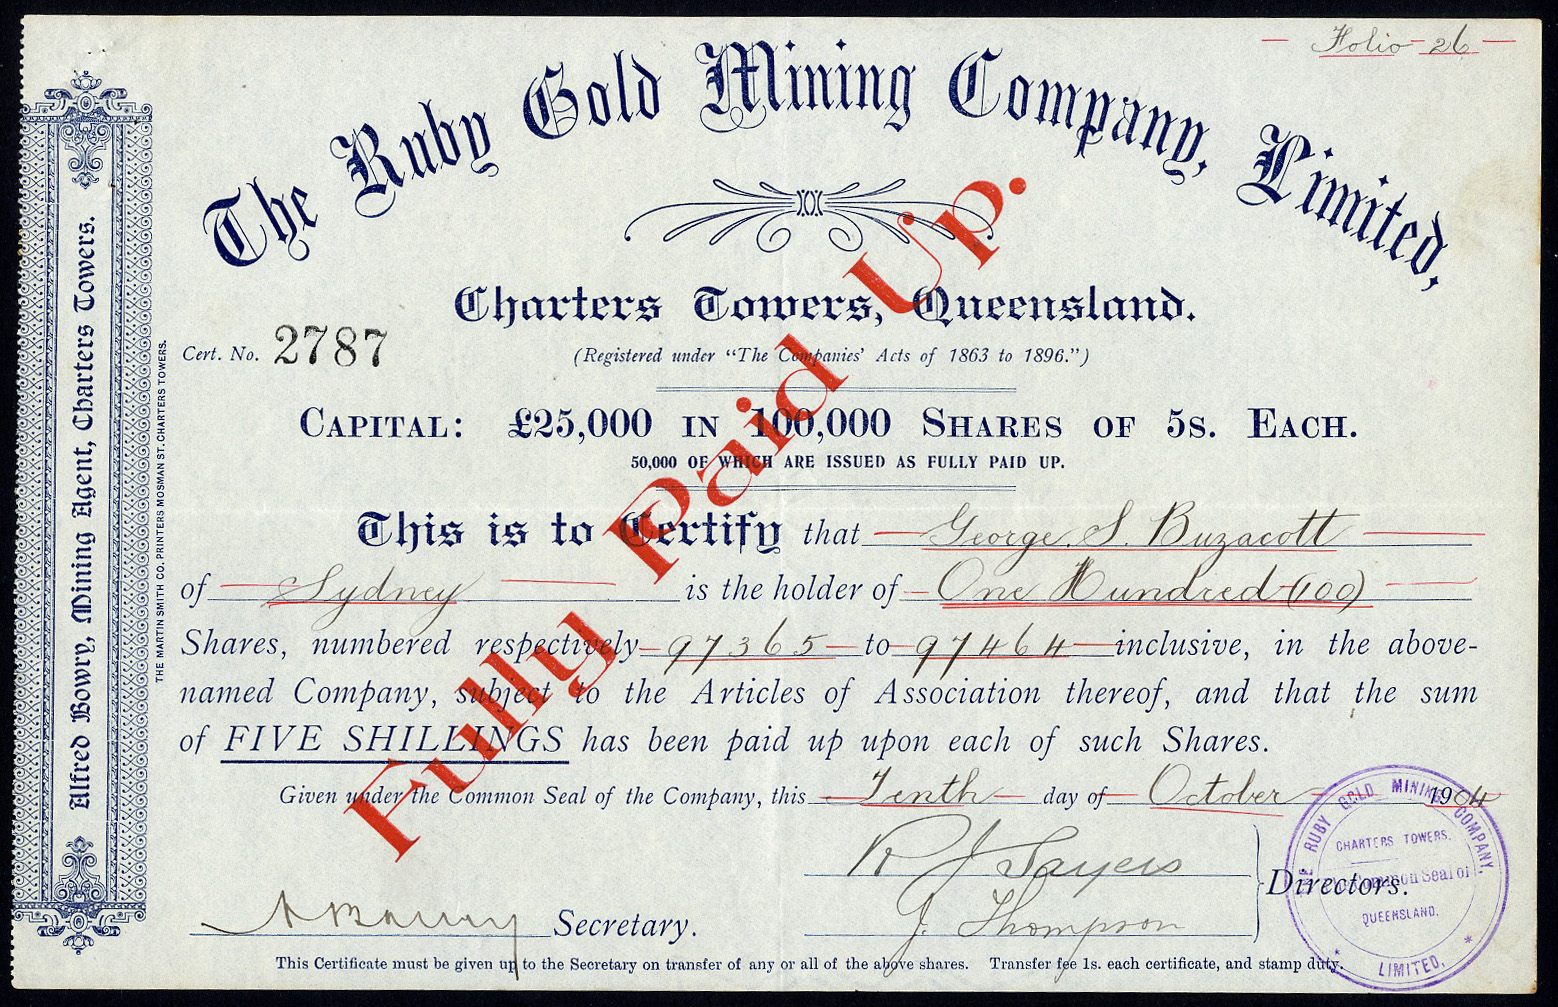 Folio 26
The Ruby Gold Mining Company, Limited,
Charters Towers, Queensland.
Cert. No. 2787
(Registered under "The Companies' Acts of 1863 to 1896.")
CAPITAL: £25,000 IN 100,000 SHARES OF 5S. EACH.
50,000 OF WHICH ARE ISSUED AS FULLY PAID UP.
Fully Paid Up.
This is to Certify that George. S. Buzacott
of Sydney is the holder of One Hundred (100)
Shares, numbered respectively 97365 to 97464 inclusive, in the above-
named Company, subject to the Articles of Association thereof, and that the sum
of FIVE SHILLINGS has been paid up upon each of such Shares.
Given under the Common Seal of the Company, this Tenth day of October 1904
R J Sayers
J. Thompson
Directors.
A Bowry Secretary.
This Certificate must be given up to the Secretary on transfer of any or all of the above shares. Transfer fee 1s. each certificate, and stamp duty.
THE RUBY GOLD MINING COMPANY
CHARTERS TOWERS.
The Common Seal of
QUEENSLAND.
LIMITED.
Alfred Bowry, Mining Agent, Charters Towers.
THE MARTIN SMITH CO. PRINTERS MOSMAN ST. CHARTERS TOWERS.